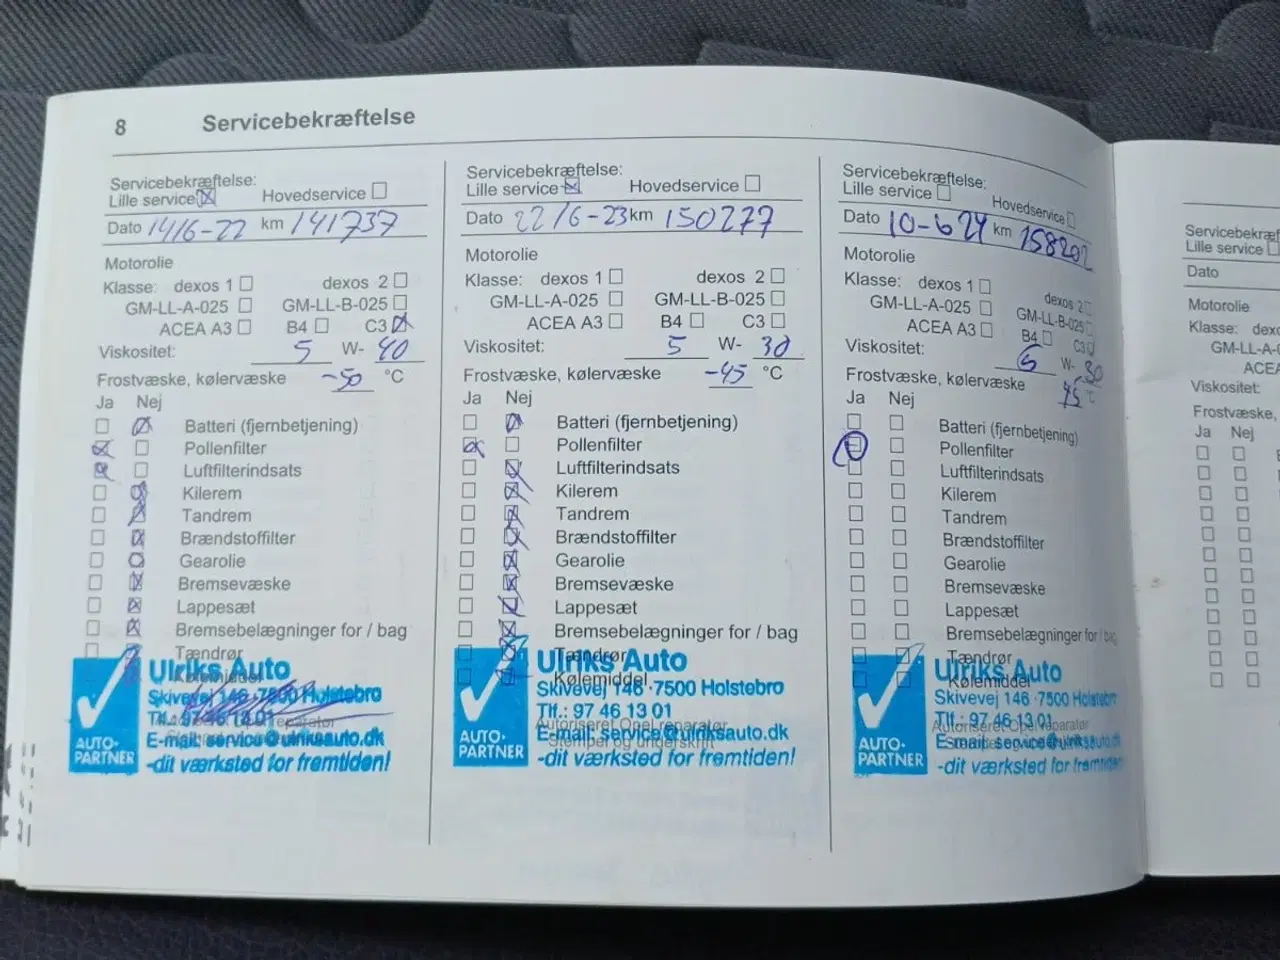 8 Servicebekræftelse
Servicebekræftelse:
Lille service Hovedservice
Dato 14/6-22 km 141737
Motorolie
Klasse: dexos 1 dexos 2
GM-LL-A-025 GM-LL-B-025
ACEA A3 B4 C3
Viskositet: 5 W- 40
Frostvæske, kølervæske -50 °C
Ja Nej
Batteri (fjernbetjening)
Pollenfilter
Luftfilterindsats
Kilerem
Tandrem
Brændstoffilter
Gearolie
Bremsevæske
Lappesæt
Bremsebelægninger for / bag
Tændrør
Kølemiddel
Ulriks Auto
Skivevej 146 · 7500 Holstebro
Tlf.: 97 46 13 01
E-mail: service@ulriksauto.dk
-dit værksted for fremtiden!
AUTO-
PARTNER
Servicebekræftelse:
Lille service Hovedservice
Dato 22/6-23 km 150277
Motorolie
Klasse: dexos 1 dexos 2
GM-LL-A-025 GM-LL-B-025
ACEA A3 B4 C3
Viskositet: 5 W- 30
Frostvæske, kølervæske -45 °C
Ja Nej
Batteri (fjernbetjening)
Pollenfilter
Luftfilterindsats
Kilerem
Tandrem
Brændstoffilter
Gearolie
Bremsevæske
Lappesæt
Bremsebelægninger for / bag
Tændrør
Kølemiddel
Ulriks Auto
Skivevej 146 · 7500 Holstebro
Tlf.: 97 46 13 01
Autoriseret Opel reparatør
E-mail: service@ulriksauto.dk
Stempel og underskrift
-dit værksted for fremtiden!
AUTO-
PARTNER
Servicebekræftelse:
Lille service Hovedservice
Dato 10-6 24 km 158202
Motorolie
Klasse: dexos 1 dexos 2
GM-LL-A-025 GM-LL-B-025
ACEA A3 B4 C3
Viskositet: 5 W- 30
Frostvæske, kølervæske 45 °C
Ja Nej
Batteri (fjernbetjening)
Pollenfilter
Luftfilterindsats
Kilerem
Tandrem
Brændstoffilter
Gearolie
Bremsevæske
Lappesæt
Bremsebelægninger for / bag
Tændrør
Kølemiddel
Ulriks Auto
Skivevej 146 · 7500 Holstebro
Tlf.: 97 46 13 01
E-mail: service@ulriksauto
-dit værksted for fremtiden
AUTO-
PARTNER
Servicebekræf
Lille service
Dato
Motorolie
Klasse: dexo
GM-LL-A-0
ACEA
Viskositet:
Frostvæske,
Ja Nej